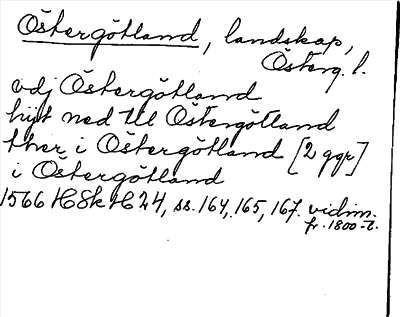 Östergötland, landskap,
Österg. l.
vdj Östergötland
hijt ned till Östergötland
ther i Östergötland [2 ggr]
i Östergötland
1566 HSk H 24, ss. 164, 165, 167. vidim.
fr. 1800-t.